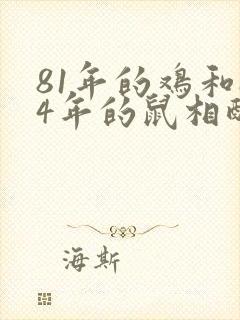 81年的鸡和
4年的鼠相
海斯